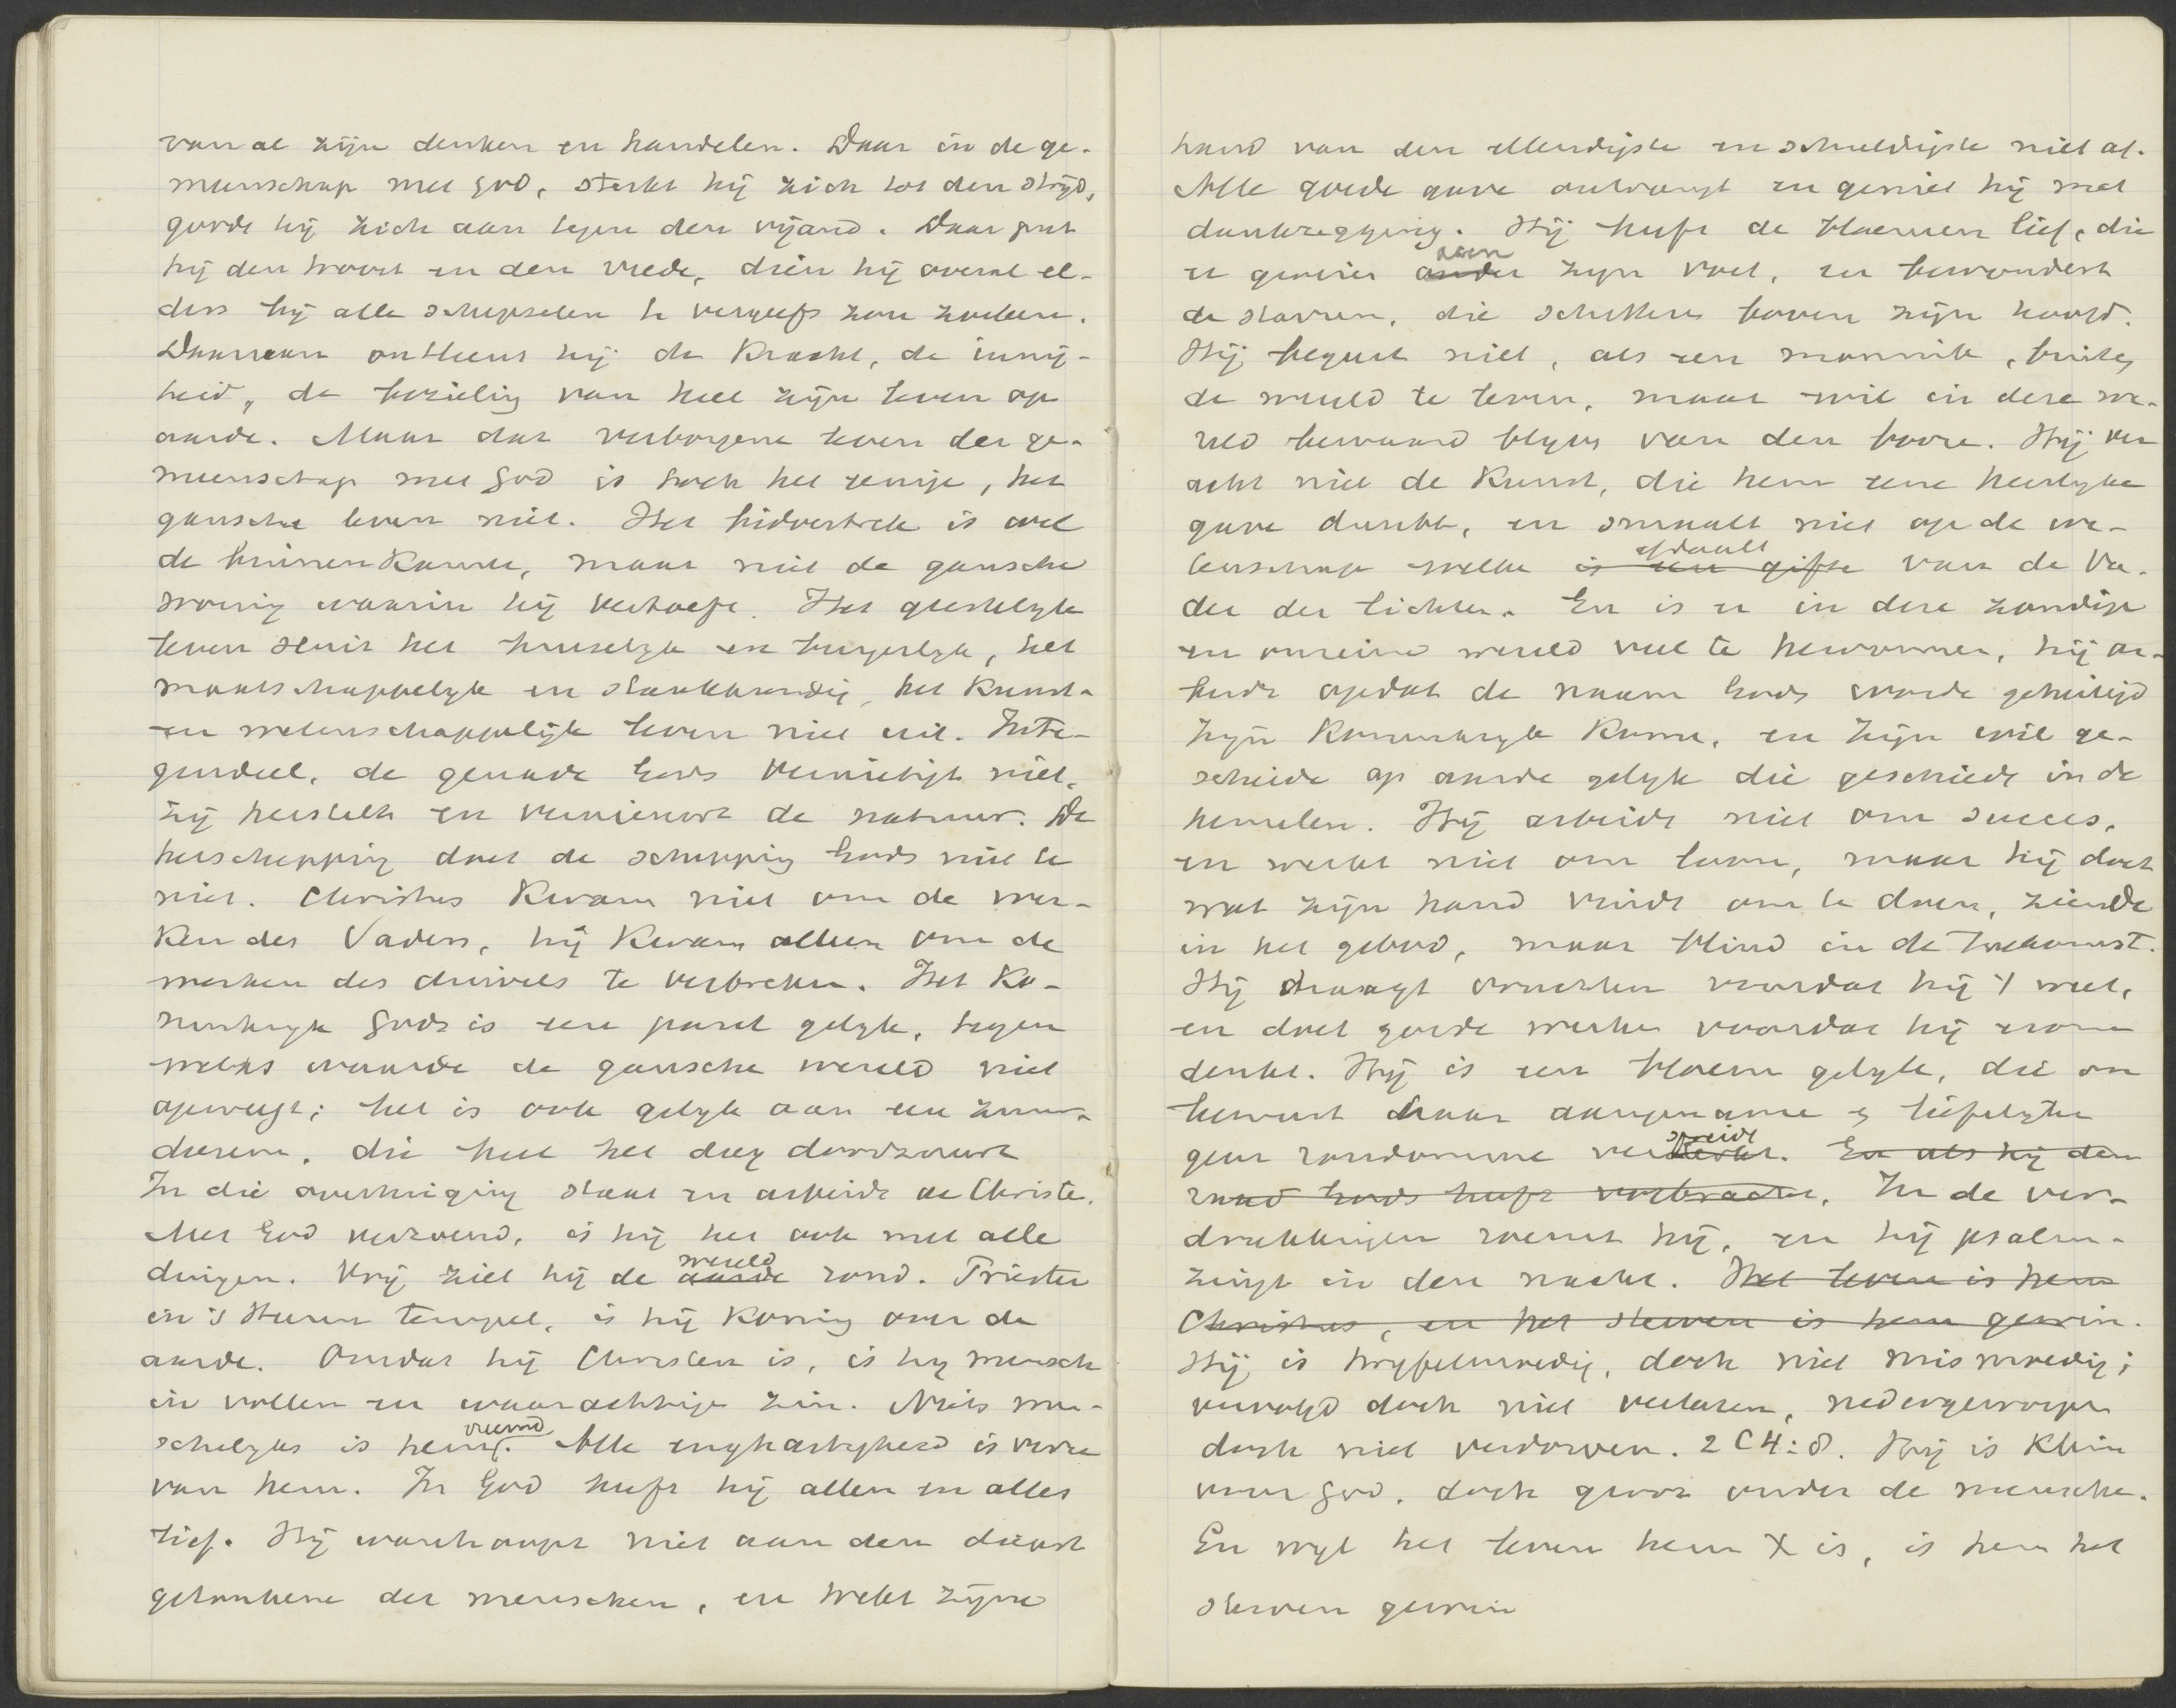 van al zijn denken en handelen. Daar in de ge-
meenschap met God, sterkt hij zich tot den strijd,
gordt hij zich aan tegen den vijand. Daar put
hij den troost en den vrede, dien hij overal el-
ders bij alle schepselen te vergeefs zou zoeken.
Daaraan ontleent hij de kracht, de innig-
heid, de bezieling van heel zijn leven op
aarde. Maar dat verborgene leven der ge-
meenschap met God is toch het eenige, het
gansche leven niet. Het bidvertrek is wel
de binnenkamer, maar niet de gansche
woning waarin hij vertoeft. Het geestelyk
leven sluit het huiselyk en burgerlyk, het
maatschappelyk en staatkundig, het kunst-
en wetenschappelijk leven niet uit. Inte-
gendeel, de genade Gods vernietigt niet,
zij herstelt en vernieuwt de natuur. De
herschepping doet de schepping Gods niet te
niet. Christus kwam niet om de wer-
ken des Vaders, hij kwam alleen om de
werken des duivels te verbreken. Het Ko-
ninkryk Gods is een parel gelyk, tegen
welks waarde de gansche wereld niet
opweegt; het is ook gelyk aan een zuur-
deesem, die heel het deeg doorzuurt
In die overtuiging staat en arbeidt de Christe.
Met God verzoend, is hij het ook met alle
dingen. Vrij ziet hij de aarde wereld rond. Priester
in 's Heeren tempel, is hij Koning over de
aarde. Omdat hij Christen is, is hy mensch
in vollen en waarachtige zin. Niets men-
schelyks is hem vreemd. Alle engharzigheid is verre
van hem. In God heeft hij allen en alles
lief. Hij wanhoopt niet aan den dienst
gezonkene der menschen, en trekt zijne
hand van den ellendigste en schuldigste niet af.
Alle goede gave ontvangt en geniet hij met
dankzegging. Hij heeft de bloemen lief, die
er groeien onder aan zyn voet, en bewondert
de starren, die schitteren boven zijn hoofd.
Hij begeert niet, als een monnik, buiten
de wereld te leven, maar wil in deze we-
reld bewaard blyven van den booze. Hij ver
acht niet de Kunst, die hem eene heerlyke
gave dunkt, en smaalt niet op de we-
tenschap welke is een gifte afdaalt van de Va-
der der lichten. En is er in deze zondige
en onreine wereld veel te hervormen, hij ar-
beidt opdat de naam Gods worde geheiligd
Zijn Koninkryk kome, en Zijn wil ge-
schiede op aarde gelyk die geschiedt in de
hemelen. Hij arbeidt niet om succes,
en werkt niet om loon, maar hij doet
wat zijn hand vindt om te doen, ziende
in het gebod, maar blind in de toekomst.
Hij draagt vruchten voordat hij 't weet,
en doet goede werken voordat hij eraan
denkt. Hij is een bloem gelyk, die on
bewust haar aangename en liefelyken
geur rondomme verspreidt. En als hij den
raad Gods heeft volbracht, In de ver-
drukkingen roemt hij, en hij psalm-
zingt in den nacht. Het leven is hem
Christus, en het sterven is hem gewin.
Hij is twyfelmoedig, doch niet mismoedig;
vervolgd doch niet verlaten, nedergeworpen
doch niet verdorven. 2 C 4:8. Hij is klein
voor God, doch groot onder de mensche.
En wyl het leven hem X is, is hem het
sterven gewin